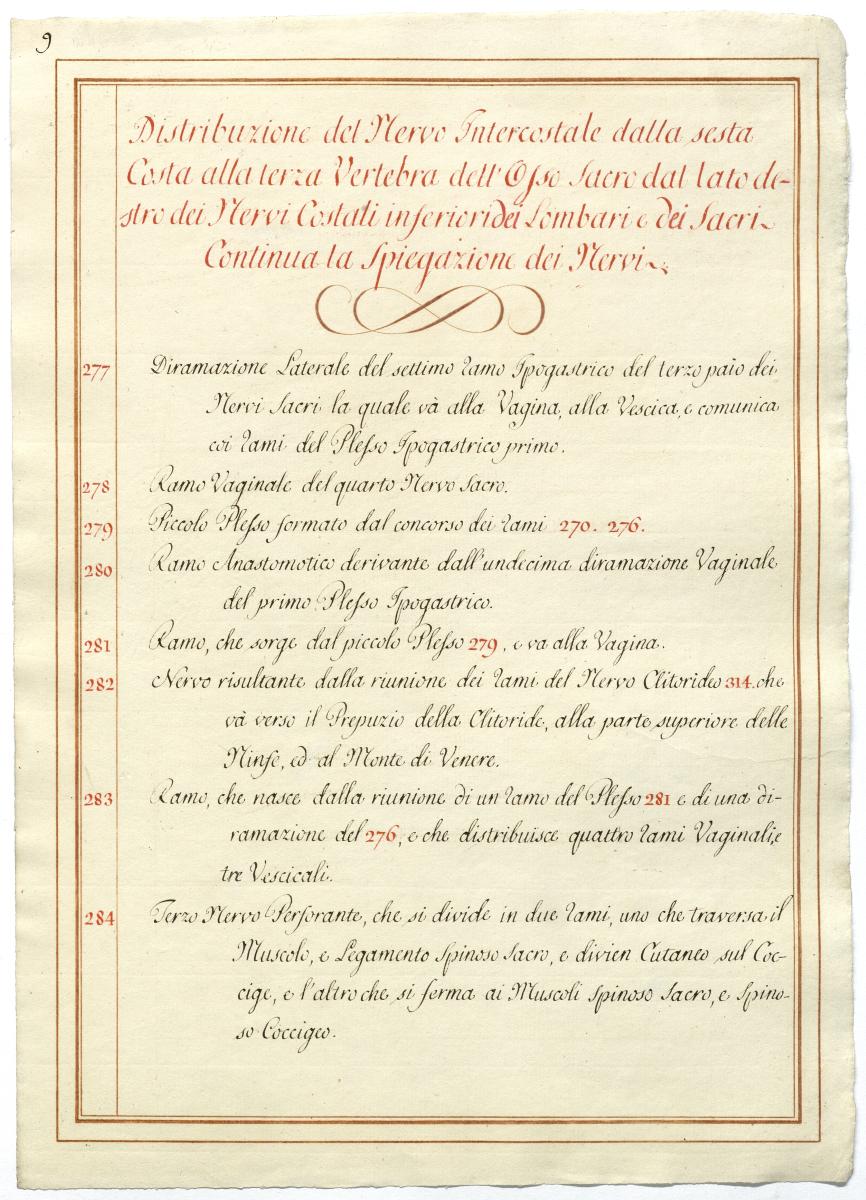 9
Distribuzione del Nervo Intercostale dalla sesta
Costa alla terza Vertebra dell'Osso Sacro dal lato de-
stro dei Nervi Costali inferiori dei Lombari e dei Sacri
Continua la Spiegazione dei Nervi
277 Diramazione Laterale del settimo ramo Ipogastrico del terzo paio dei
Nervi Sacri la quale và alla Vagina, alla Vescica, e comunica
coi rami del Plesso Ipogastrico primo.
278 Ramo Vaginale del quarto Nervo Sacro.
279 Piccolo Plesso formato dal concorso dei rami 270. 276.
280 Ramo Anastomotico derivante dall'undecima diramazione Vaginale
del primo Plesso Ipogastrico.
281 Ramo, che sorge dal piccolo Plesso 279, e va alla Vagina.
282 Nervo risultante dalla riunione dei rami del Nervo Clitorideo 314. che
và verso il Prepuzio della Clitoride, alla parte superiore delle
Ninfe, ed al Monte di Venere.
283 Ramo, che nasce dalla riunione di un ramo del Plesso 281 e di una di-
ramazione del 276, e che distribuisce quattro rami Vaginali, e
tre Vescicali.
284 Terzo Nervo Perforante, che si divide in due rami, uno che traversa il
Muscolo, e Legamento Spinoso Sacro, e divien Cutaneo sul Coc-
cige, e l'altro che si ferma ai Muscoli Spinoso Sacro, e Spino-
so Coccigeo.